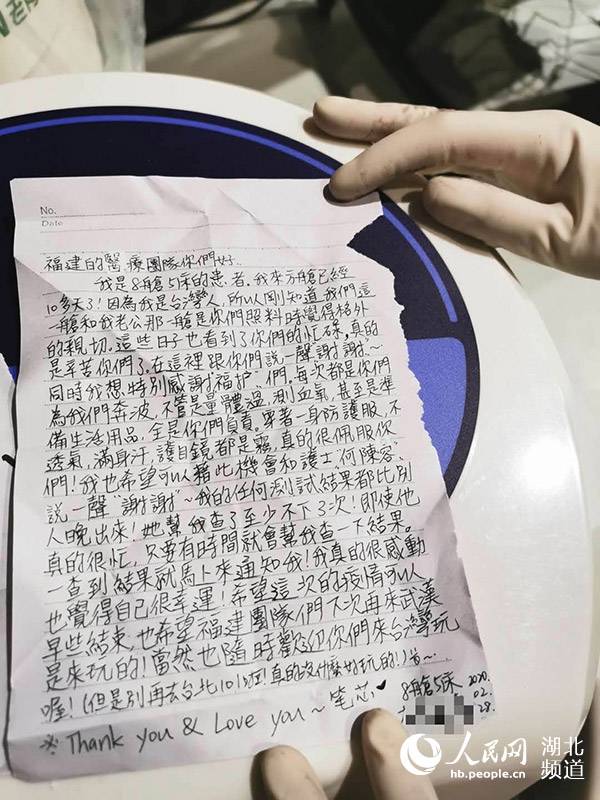 No.
Date
福建的醫療團隊你們好
我是8艙5床的患者。我來方艙已經
10多天了!因為我是台灣人,所以剛知道我們這
一艙和我老公那一艙是你們照料時覺得格外
的親切。這些日子也看到了你們的忙碌,真的
是辛苦你們了。在這裡跟你們說一聲"謝謝"~
同時我想特別感謝福护 們。每次都是你們
為我們奔波,不管是量體溫,測血氧,甚至是準
備生活用品,全是你們負責。穿著一身防護服,不
透氣,滿身汗,護目鏡都是霧,真的很佩服你
們!我也希望可以藉此機會和護士,何陳容,
說一聲"謝謝"~我的任何測試結果都比別
人晚出來!她幫我查了至少不下3次!即使他
真的很忙,只要有時間就會幫我查一下結果。
一查到結果就馬上來通知我!我真的很感動
也覺得自己很幸運!希望這一次的疫情可以
早些結束,也希望福建團隊們下次再來武漢
是來玩的!當然也隨時歡迎你們來台灣玩
喔!(但是別再去台北101啦!真的沒什麼好玩的!)哈~
※Thank you & Love you~笔芯♥
8艙5床 2020.
02.
28.
人民网 湖北
hb.people.cn 频道